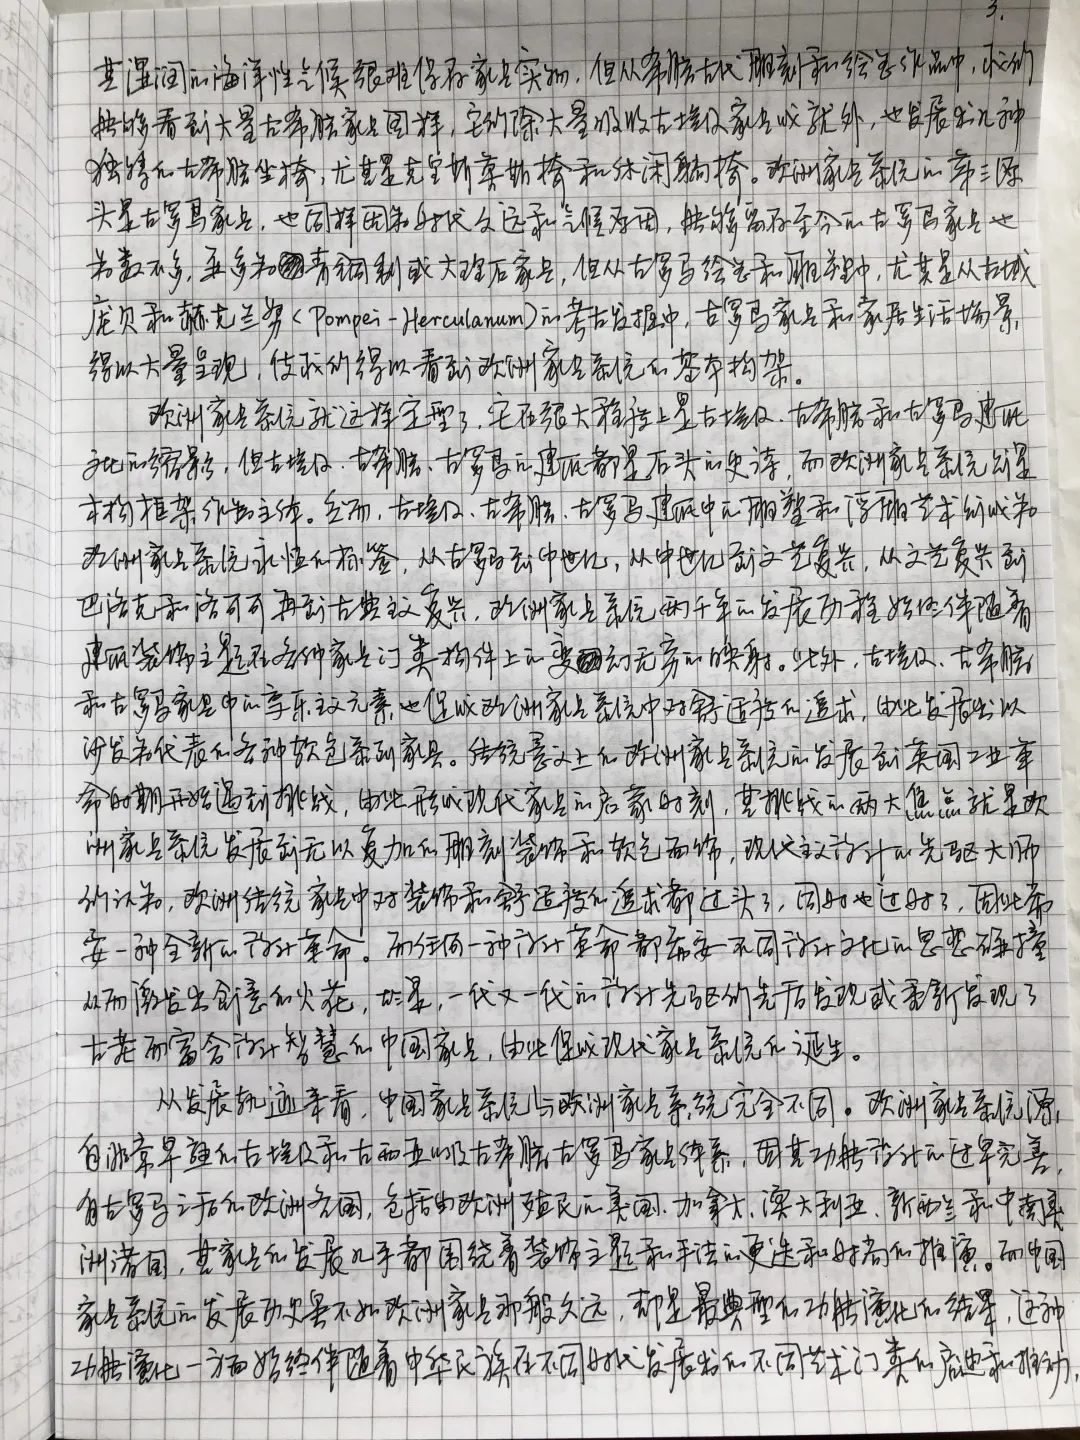 3.
其湿润的海洋性气候很难保存家具实物，但从希腊古代雕刻和绘画作品中，我们
能够看到大量古希腊家具图样，它们除大量吸收古埃及家具成就外，也发展出几种
独特的古希腊坐椅，尤其是克里斯莫斯椅和休闲躺椅。欧洲家具系统的第三源
头是古罗马家具，也同样因为时代久远和气候原因，能够留存至今的古罗马家具也
为数不多，且多为青铜制或大理石家具，但从古罗马绘画和雕塑中，尤其是从古城
庞贝和赫克兰努（Pompei-Herculanum）的考古发掘中，古罗马家具和家居生活场景，
得以大量呈现，使我们得以看到欧洲家具系统的基本构架。
欧洲家具系统就这样定型了，它在很大程度上是古埃及、古希腊和古罗马建筑
文化的缩影，但古埃及、古希腊、古罗马的建筑都是石头的史诗，而欧洲家具系统则是
木构框架作为主体。然而，古埃及、古希腊、古罗马建筑中的雕塑和浮雕艺术则成为
欧洲家具系统永恒的标签，从古罗马到中世纪，从中世纪到文艺复兴，从文艺复兴到
巴洛克和洛可可再到古典主义复兴，欧洲家具系统两千年的发展历程始终伴随着
建筑装饰主题在各种家具门类构件上的变幻无穷的映射。此外，古埃及、古希腊
和古罗马家具中的享乐主义元素，也促成欧洲家具系统中对舒适性的追求，由此发展出以
沙发为代表的各种软包系列家具。传统意义上的欧洲家具系统的发展到英国工业革
命时期开始遇到挑战，由此形成现代家具的启蒙时刻，其挑战的两大焦点就是欧
洲家具系统发展到无以复加的雕刻装饰和软包面饰，现代主义设计的先驱大师
们认为，欧洲传统家具中对装饰和舒适性的追求都过头了，同时也过时了，因此需
要一种全新的设计革命。而任何一种设计革命都需要不同设计文化的思想碰撞
从而激发出创意的火花，于是，一代又一代的设计先驱们先后发现或重新发现了
古老而富含设计智慧的中国家具，由此促成现代家具系统的诞生。
从发展轨迹来看，中国家具系统与欧洲家具系统完全不同。欧洲家具系统源
自非常早熟的古埃及和古西亚以及古希腊古罗马家具体系，因其功能设计的过早完善，
自古罗马之后的欧洲各国，包括由欧洲殖民的美国、加拿大、澳大利亚、新西兰和中南美
洲诸国，其家具的发展几乎都围绕着装饰主题和手法的更迭和时尚的推演。而中国
家具系统的发展历史虽不如欧洲家具那般久远，却是最典型的功能演化的结果，这种
功能演化一方面始终伴随着中华民族在不同时代发展出的不同艺术门类的启迪和推动，